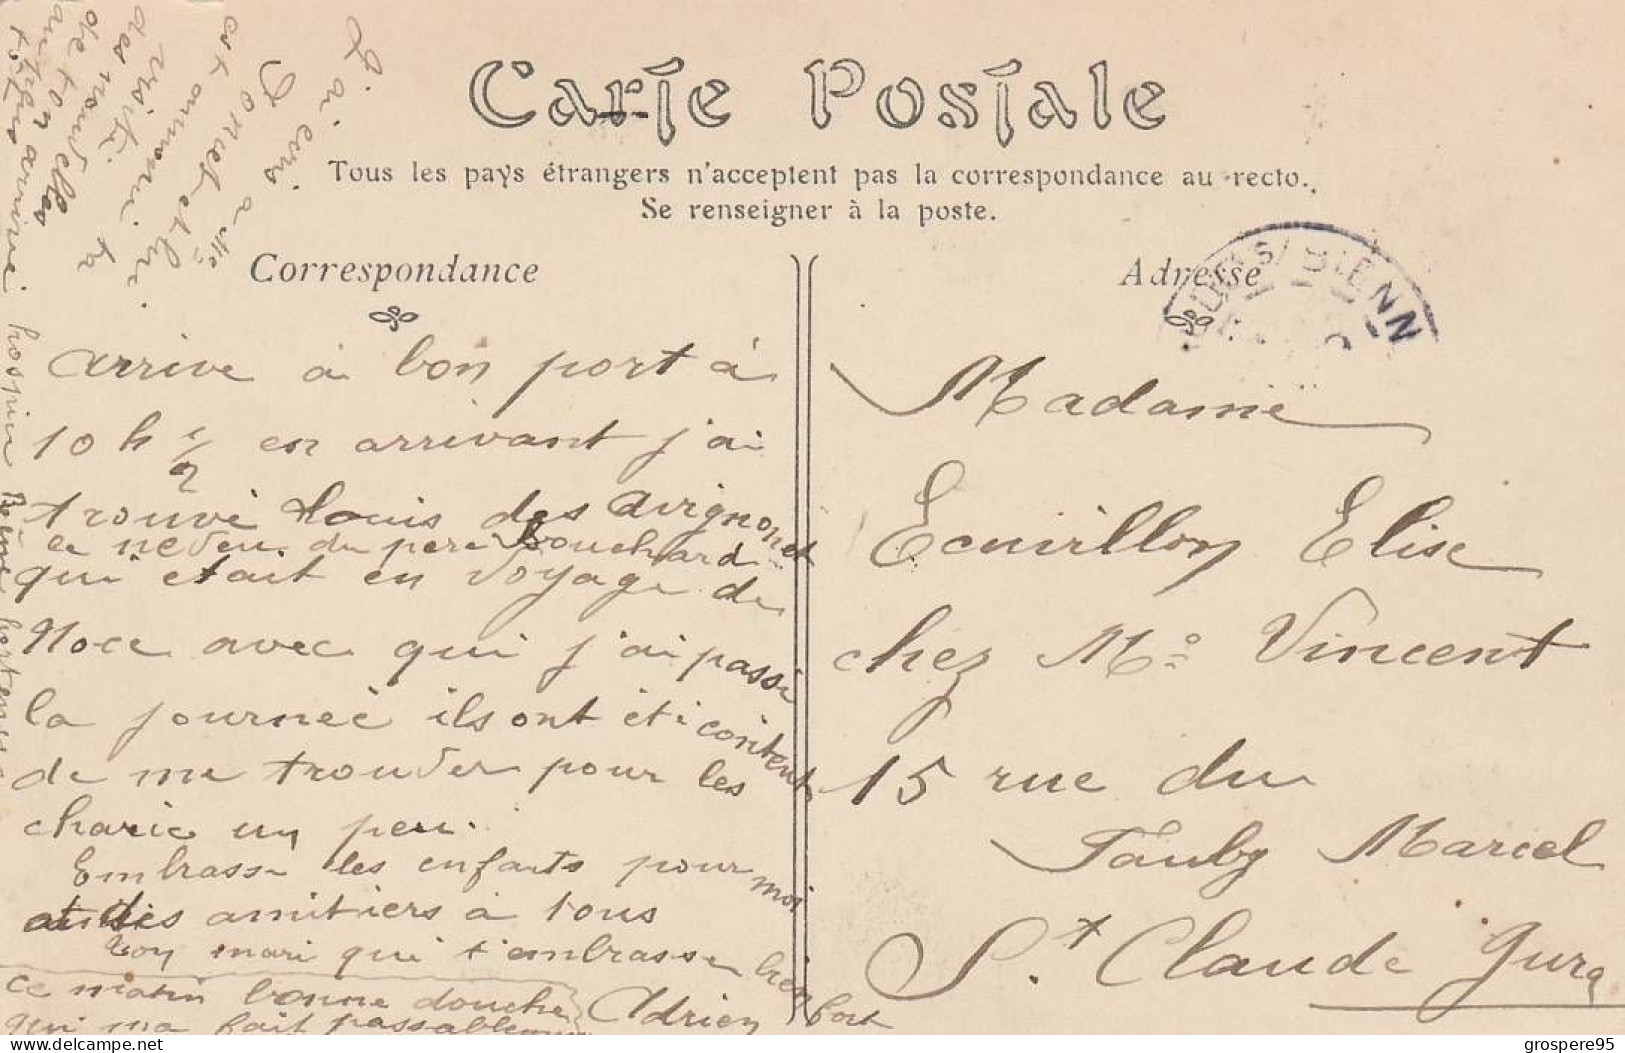 Carte Postale
Tous les pays étrangers n'acceptent pas la correspondance au recto.
Se renseigner à la poste.
Correspondance
Adresse
arrive à bon port à
10 h 1/2 en arrivant j'ai
trouvé Louis des avignonet
le neveu du père Bouchard
qui était en voyage de
Noce avec qui j'ai passé
la journeé ils ont été content
de me trouver pour les
charié un peu.
Embrasse les enfants pour moi
amitiers à tous
ton mari qui t'embrasse bien fort
Adrien
ce matin bonne douche
qui ma fait passablement
J'ai ecris a Mle
Donnet
visite
des nouvelles
BIENN
Madame
Ecuvillon Elise
chez Me Vincent
15 rue du
Faubg Marcel
St Claude Jura
grospere95
www.delcampe.net